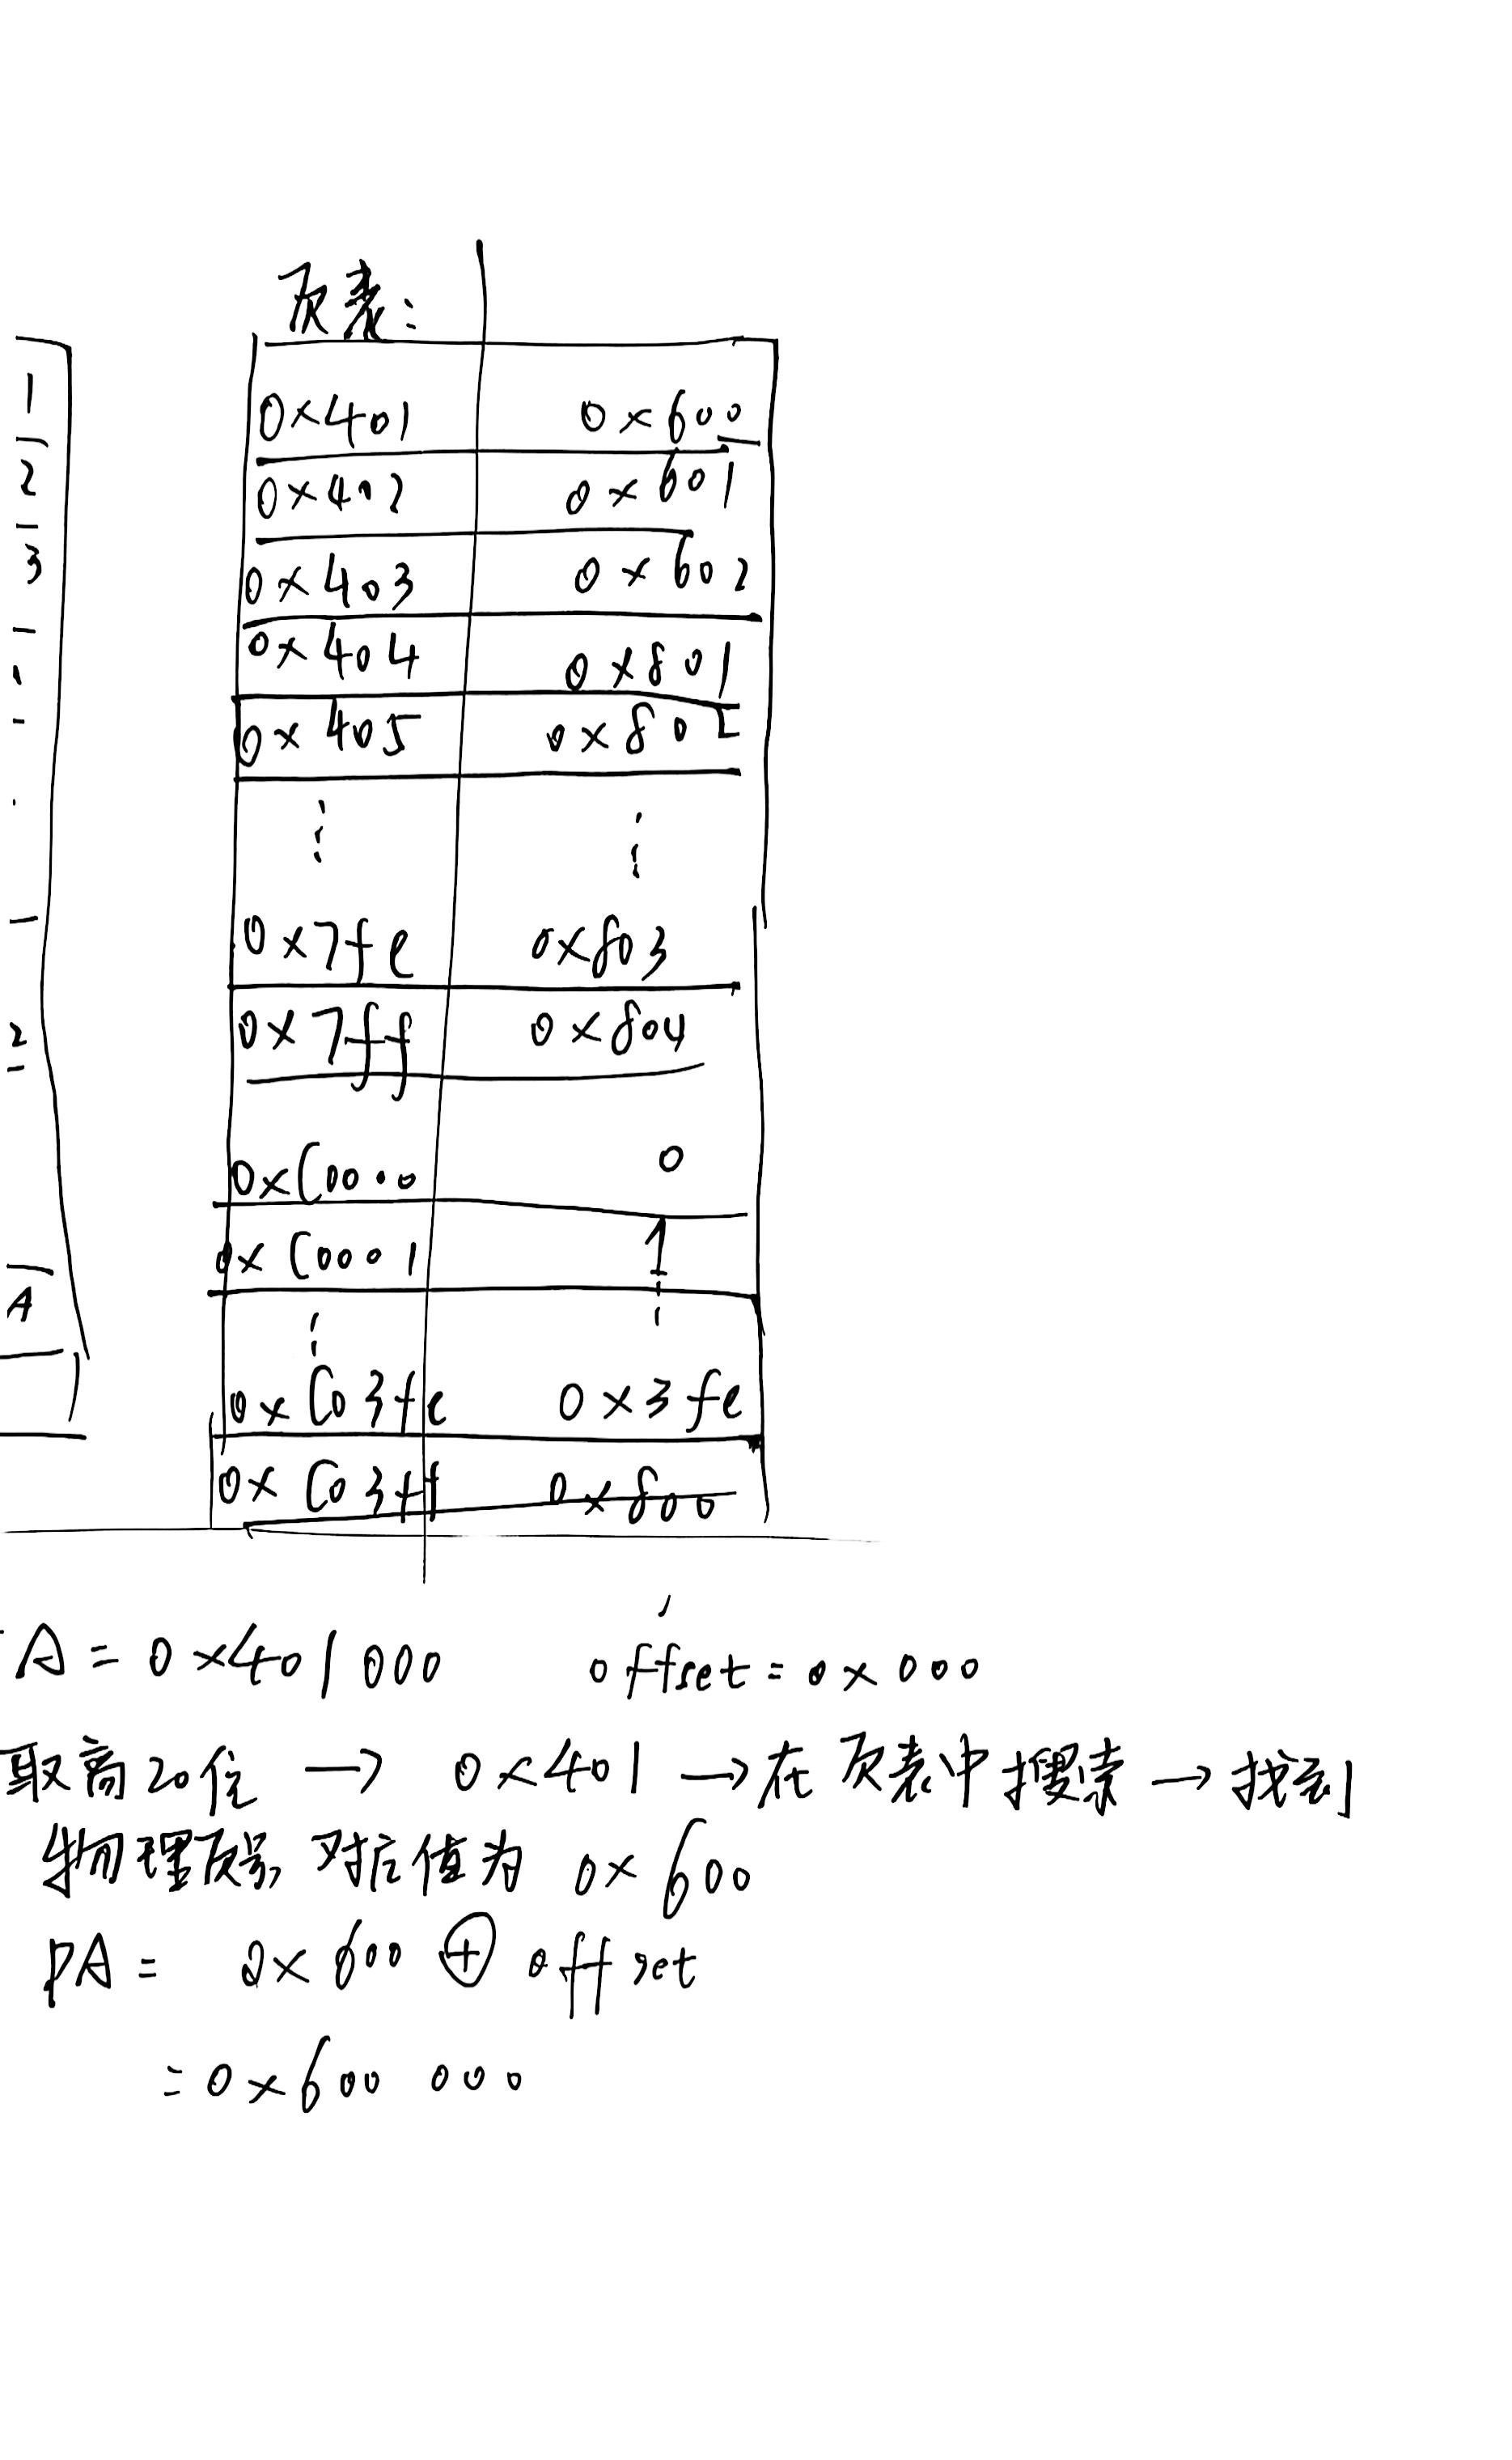 页表:
1
2
3
2
4
0x401 0x600
0x402 0x601
0x403 0x602
0x404 0x801
0x405 0x802
⋮ ⋮
0x7fe 0x803
0x7ff 0x804
0xC0000 0
0xC0001 1
⋮ ⋮
0xC03fe 0x3fe
0xC03ff 0x800
A = 0x401000 offset = 0x000
取高20位 → 0x401 → 在页表中搜索 → 找到
物理页号对应值为 0x600
PA = 0x600 ⊕ offset
= 0x600 000